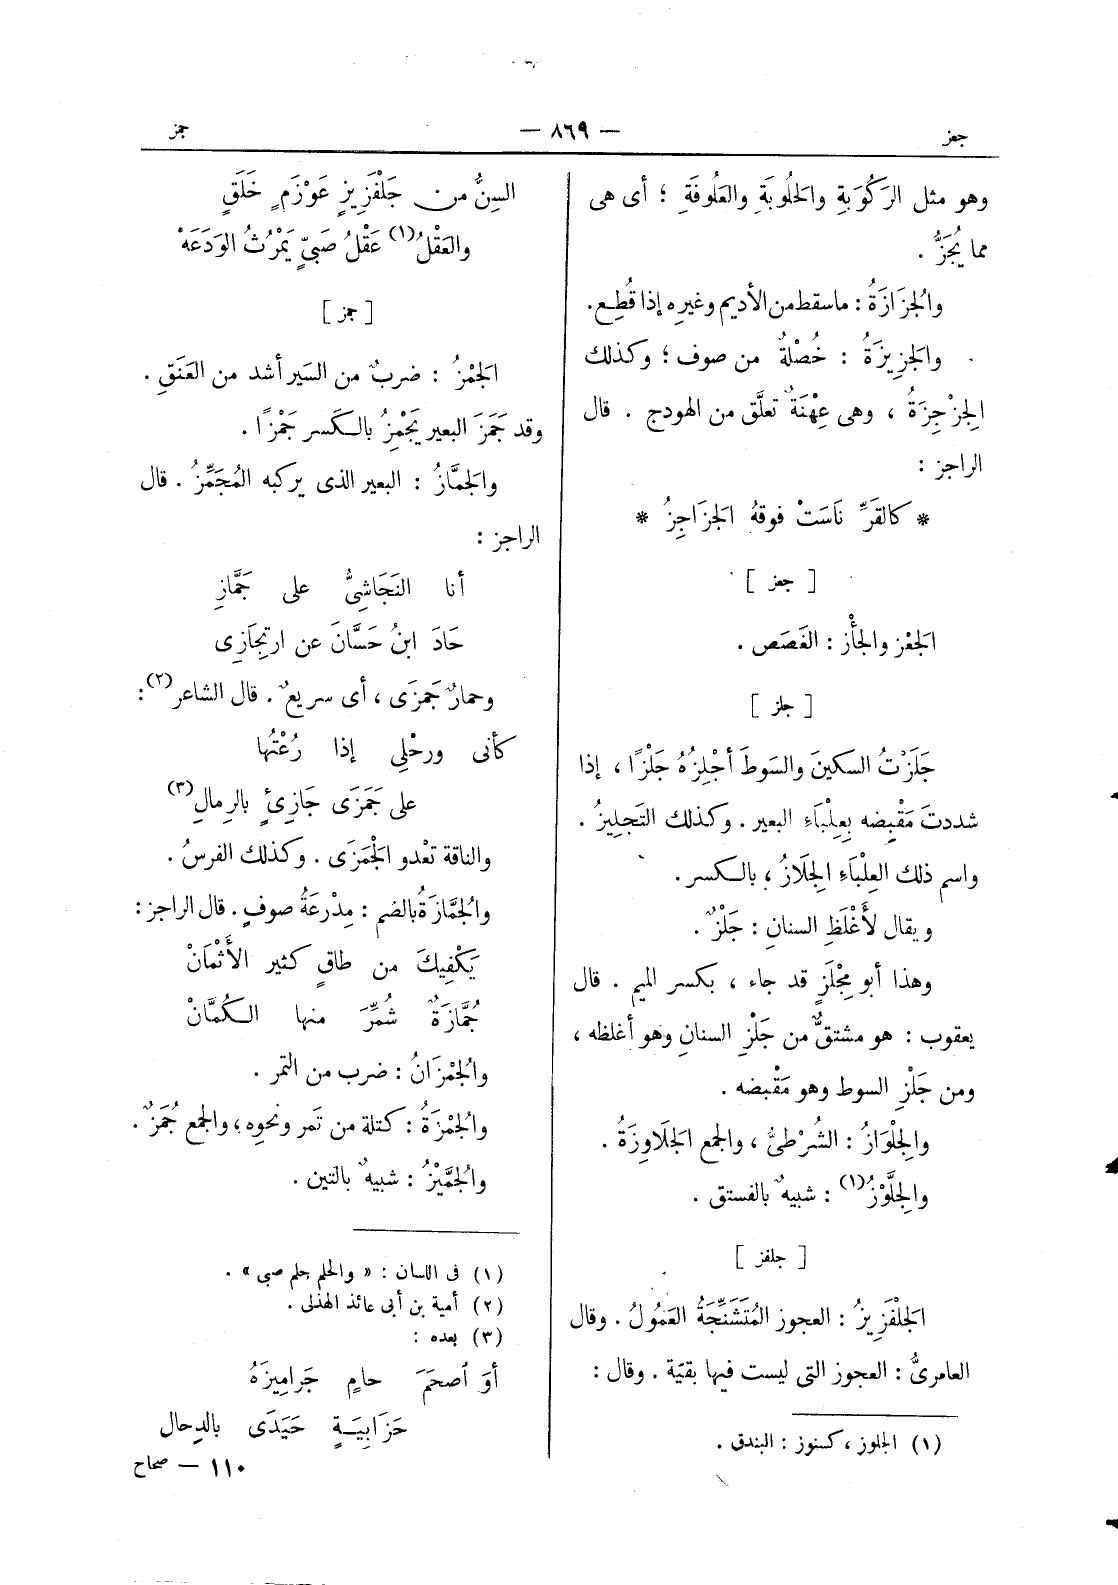 جعز
— ٨٦٩ —
جمز
وهو مثل الرَكُوبَةِ والحَلُوبَةِ والعَلُوفَةِ ؛ أى هى
مما يُجَزُّ .
والجُزَازَةُ : ماسقط من الأديم وغيرِه إذا قُطِع.
والجَزِيزَةُ : خُصْلةٌ من صوف ؛ وكذلك
الجِزْجِزَةُ ، وهى عِهْنَةٌ تعلَّق من الهودج . قال
الراجز :
* كالقَرِّ نَاسَتْ فوقهُ الجَزَاجِزُ *
[ جعز ]
الجَعْز والجَأْز : الغَصَص .
[ جلز ]
جَلَزْتُ السكينَ والسَوطَ أجْلِزُهُ جَلْزًا ، إذا
شددتَ مَقْبِضه بِعِلْبَاءِ البعير . وكذلك التَجلِيزُ .
واسم ذلك العِلْبَاءِ الجِلَازُ ، بالكسر.
ويقال لأَغْلَظِ السنانِ : جَلْزٌ .
وهذا أبو مِجْلَزٍ قد جاء ، بكسر الميم . قال
يعقوب : هو مشتقٌّ من جَلْزِ السنانِ وهو أغلظه ،
ومن جَلْزِ السوط وهو مَقْبضه .
والجِلْوَازُ : الشُرْطىُّ ، والجمع الجَلَاوِزَةُ .
والجِلَّوْزُ(١) : شبيهٌ بالفستق .
[ جلفز ]
الجَلْفَزِيزُ : العجوز المُتَشَنِّجَةُ العَمُولُ . وقال
العامرىُّ : العجوز التى ليست فيها بقيّة . وقال :
(١) الجلوز ، كسنور : البندق .
السِنُّ من جَلْفَزِيزٍ عَوْزَمٍ خَلَقٍ
والعَقْلُ(١) عَقْلُ صَبِىٍّ يَمْرُثُ الوَدَعَهْ
[ جمز ]
الجَمْزُ : ضربٌ من السَير أشد من العَنَقِ .
وقد جَمَزَ البعير يَجْمِزُ بالكَسر جَمْزًا .
والجَمَّازُ : البعير الذى يركبه المُجَمِّزُ . قال
الراجز :
أنا النَجَاشِىُّ على جَمَّازِ
حَادَ ابنُ حَسَّانَ عن ارتِجَازِى
وحمارٌ جَمزَى ، أى سريعٌ . قال الشاعر(٢) :
كأنى ورحْلِى إذا رُعْتُها
على جَمَزَى جَازِئٍ بالرِمالِ(٣)
والناقة تعْدو الجَمَزَى . وكذلك الفرسُ .
والجُمَّازَةُ بالضم : مِدْرعَةُ صوفٍ . قال الراجز :
يَكْفِيكَ من طاقٍ كثير الأَثْمَانْ
جُمَّازَةٌ شُمِّرَ منها الكُمَّانْ
والجُمْزَانُ : ضرب من التمر .
والجُمْزَةُ : كتلة من تَمر ونحوِه ؛ والجمع جُمَزٌ .
والجُمَّيْزُ : شبيهٌ بالتين .
(١) فى اللسان : « والحلم حلم صبى » .
(٢) أمية بن أبى عائذ الهذلى .
(٣) بعده :
أوَ اصحَمَ حامٍ جَرامِيزَهُ
حَزَابِيَةٍ حَيَدَى بالدِحال
١١٠ — صحاح